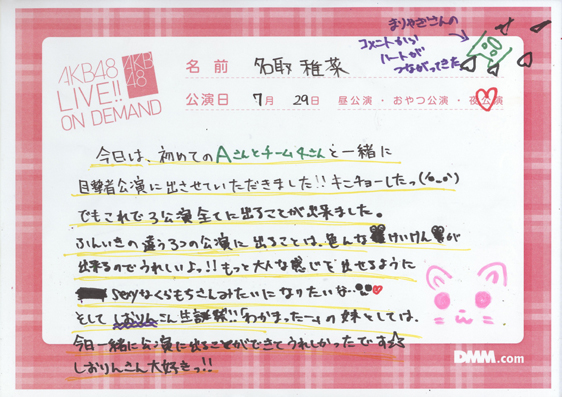 AKB48
LIVE!!
ON DEMAND
AKB
48
まりやぎさんの
コメントから
ハートが
つながってきた
名前 名取 稚菜
公演日 7月 29日 昼公演・おやつ公演・夜公演
今日は、初めてのAさんとチーム4さんと一緒に
目撃者公演に出させていただきました!! キンチョーしたっ
でもこれで3公演全てに出ることが出来ました。
ふんいきの違う3つの公演に出ることは、色んなけいけんが
出来るのでうれしいよっ!! もっと大人な感じを出せるように
Sexyなくらもちさんみたいになりたいな…
そしてしおりんさん生誕祭!!「わかまったー」の妹としては、
今日一緒に公演に出ることができてうれしかったです☆
しおりんさん大好きっ!!
DMM.com